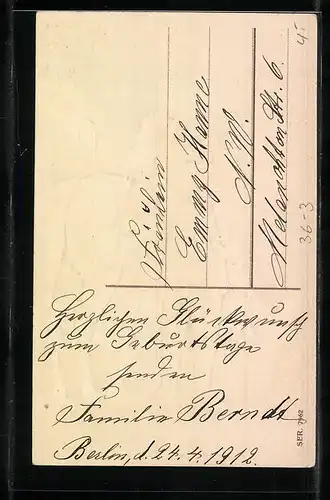 Fräulein
Emmy Hanne
N.W.
Melanchton Str. 6.
Herzlichen Glückwunsch
zum Geburtstage
senden
Familie Berndt
Berlin, d. 24.4.1912.
4.-
36-3
SER. 7962